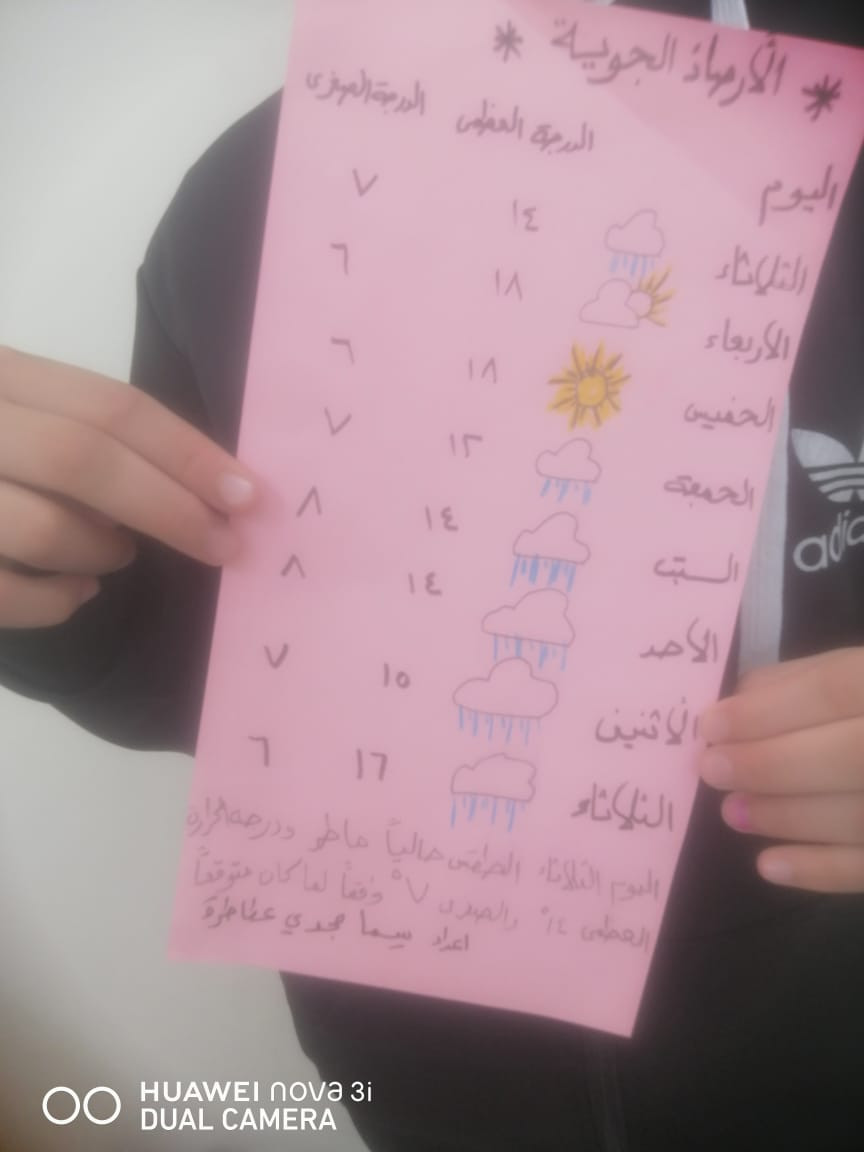 * الأرصاد الجوية *
اليوم الدرجة العظمى الدرجة الصغرى
الثلاثاء ١٤ ٧
الأربعاء ١٨ ٦
الخميس ١٨ ٦
الجمعة ١٣ ٧
السبت ١٤ ٨
الأحد ١٤ ٨
الأثنين ١٥ ٧
الثلاثاء ١٦ ٦
اليوم الثلاثاء الطقس حالياً ماطر ودرجه الحرارة
العظمى ١٤° والصغرى ٧° وفقاً لما كان متوقعاً
اعداد سيما مجدي عطاطرة
adidas
HUAWEI nova 3i
DUAL CAMERA